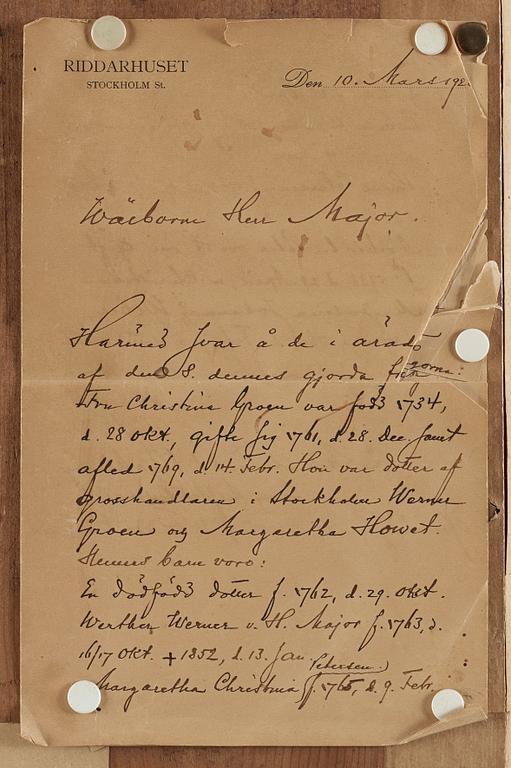 RIDDARHUSET
STOCKHOLM St.
Den 10. Mars 192
Herr Major.
Härmed svar å de i
af den 8. dennes gjorda
gorna:
Fru Christina Groen var född 1734,
d. 28 Okt., gifte sig 1761, d. 28. Dec. samt
afled 1769, d. 14. Febr. Hon var dotter af
grosshandlaren i Stockholm Werner
Groen och Margaretha Howet.
Hennes barn voro:
En dödfödd dotter f. 1762, d. 29. Okt.
Werther Werner v. H. Major f. 1763, d.
16/17 Okt. + 1852, d. 13. Jan.
Margaretha Christina f. 1765, d. 9. Febr.